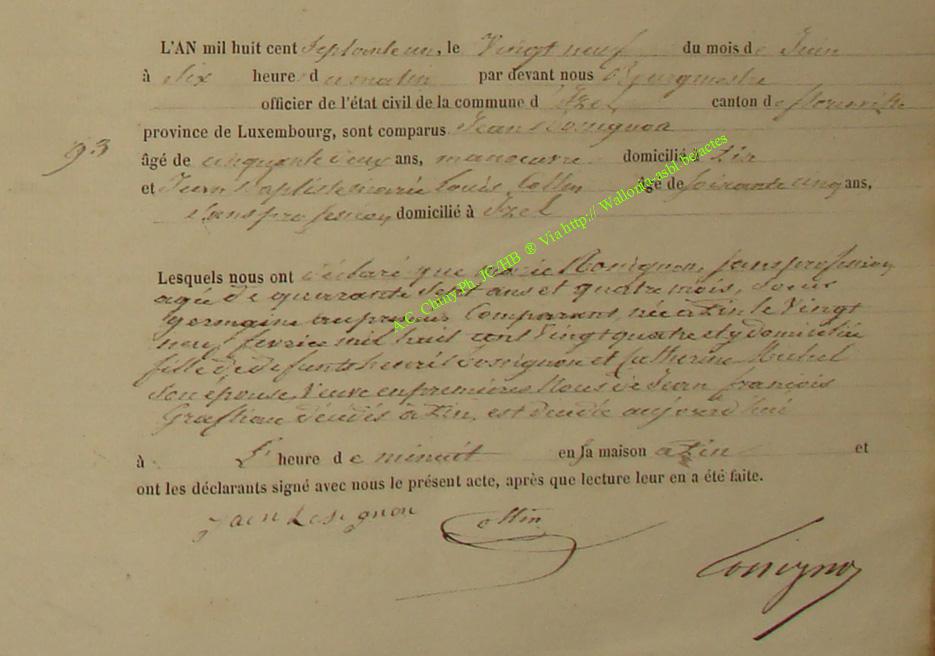 L'AN mil huit cent septante un, le Vingt neuf du mois de Juin
à dix heure du matin par devant nous Bourgmestre
officier de l'état civil de la commune d'Izel canton de florenville
province de Luxembourg, sont comparus Jean
93
âgé de cinquante deux ans, manoeuvre domicilié à
et Jean Baptiste marie Louis Collin âgé de soixante cinq ans,
sans profession domicilié à Izel
A.C. Chiny.Ph. JC/HB ® Via http:// Wallonia-asbl.be/actes
Lesquels nous ont déclaré que Rossignon, sans profession
agée de quarante sept ans et quatre mois, soeur
germaine au premier Comparant, née à Pin le Vingt
neuf fevrier mil huit cent Vingt quatre et y domiciliée
fille de defunts henri Rossignon et Catherine Michel
son épouse, Veuve en premières Noces de Jean françois
décédés à Pin, est décédée aujourd'hui
à L' heure de minuit en sa maison a Pin et
ont les déclarants signé avec nous le présent acte, après que lecture leur en a été faite.
Collin